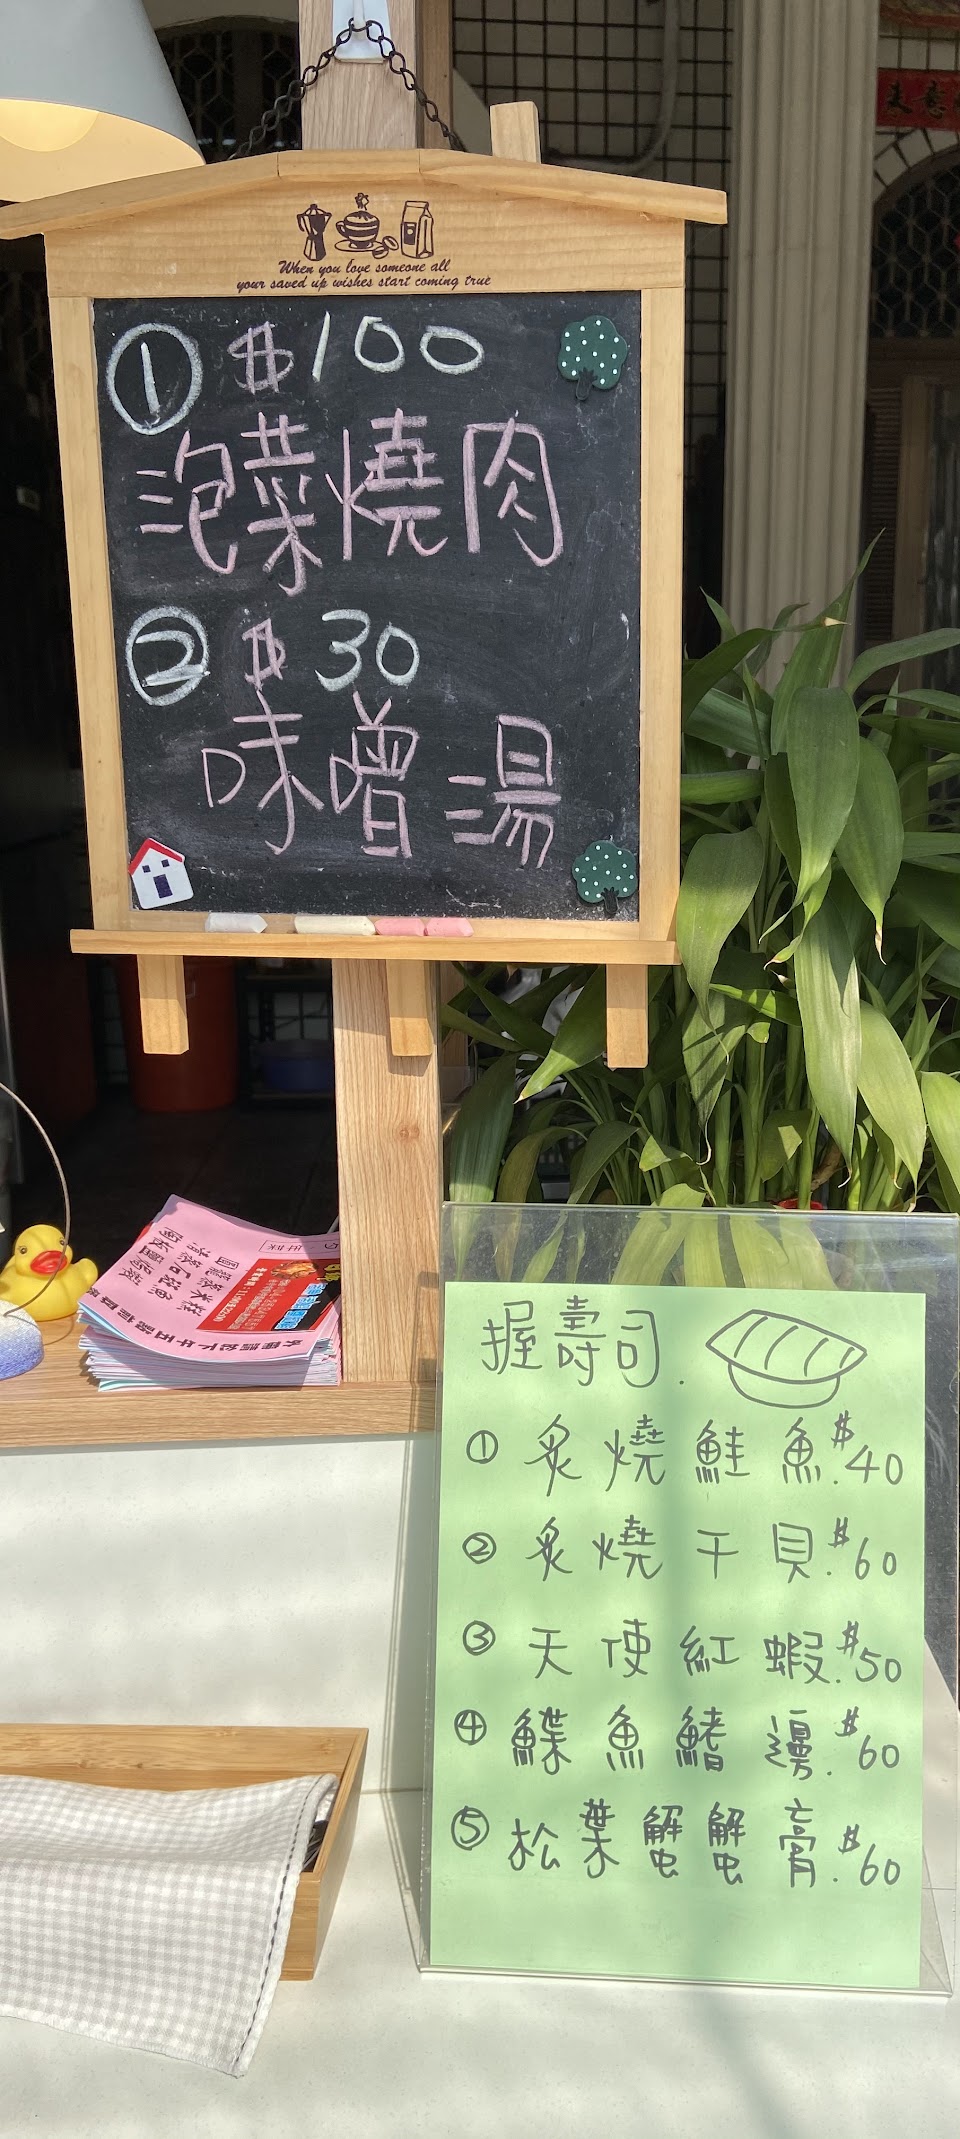 When you love someone all
your saved up wishes start coming true
① $100
泡菜燒肉
② $30
味噌湯
握壽司.
① 炙燒鮭魚.$40
② 炙燒干貝.$60
③ 天使紅蝦.$50
④ 鰈魚鰭邊.$60
⑤ 松葉蟹蟹膏.$60